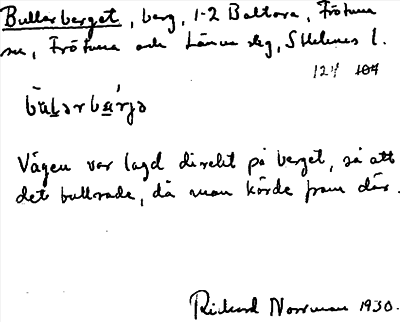 Bullerberget, berg, 1-2 Baltora, Frötuna
sn, Frötuna och Länna skg, Sthlms l.
124 104
bŭlərbærjə
Vägen var lagd direkt på berget, så att
det bullrade, då man körde fram där.
Rickard Norrman 1930.